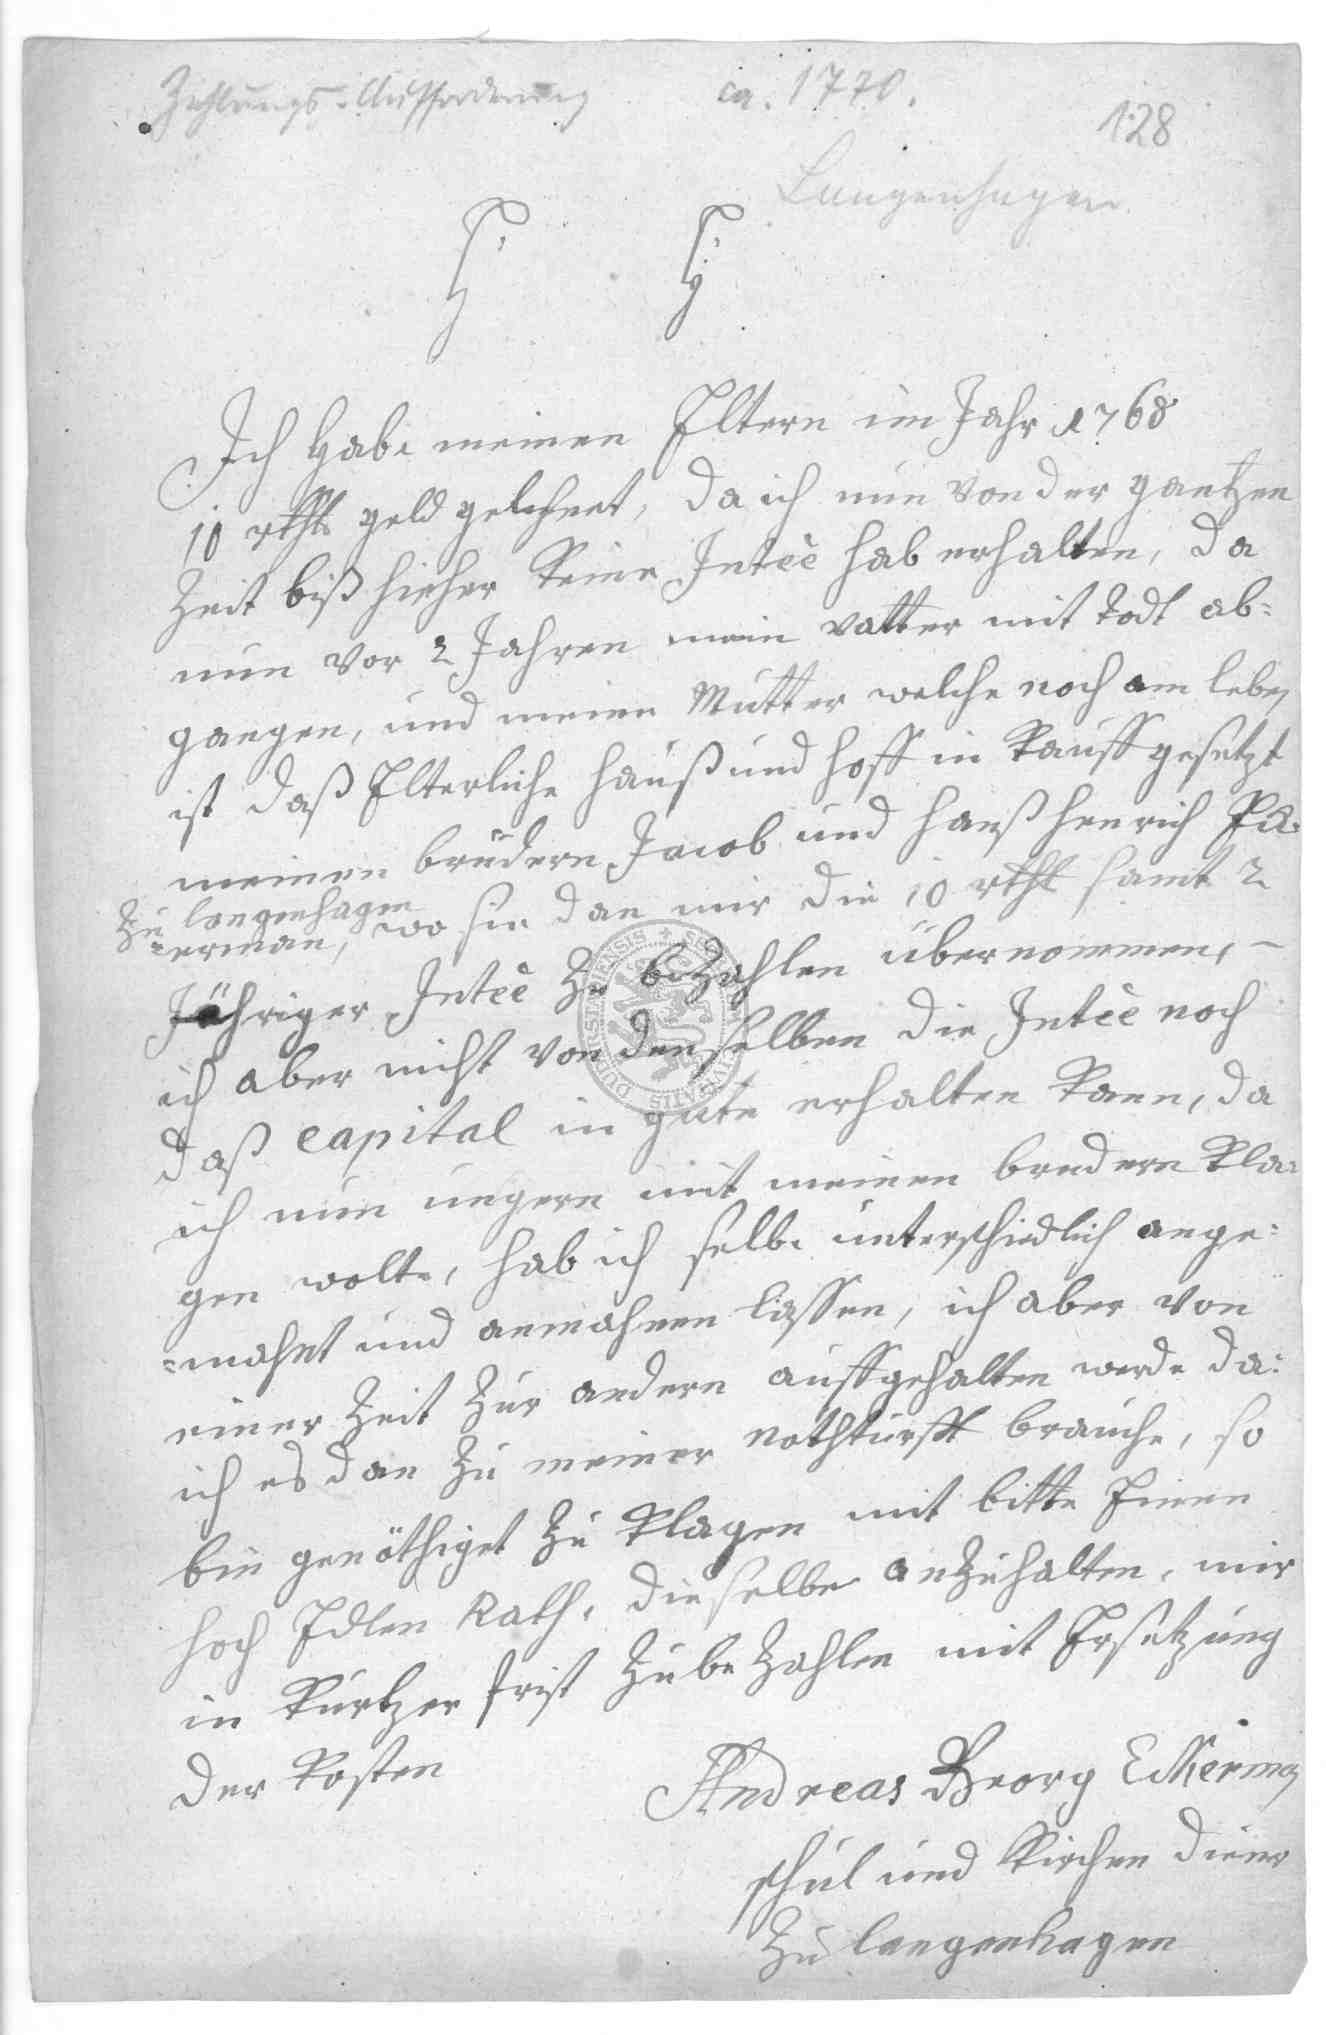 Zahlungs-Aufforderung ca. 1770.
128
Langenhagen
Ich Habe meinen Eltern im Jahr 1768
10 rthl geld gelehnet, da ich nun von der gantzen
Zeit biß hieher keine Inteè hab erhalten, da
nun vor 2 Jahren mein vatter mit todt ab=
gangen, und meine Mutter welche noch am leben
ist daß Elterliche hauß und hoff in kauff gesetzt
meinen brüdern Jacob und hanß henrich Eck=
zu langenhagen
=erman, wo sie dan mir die 10 rthl samt 2
Jähriger Inteè zu bezahlen übernommen, –
ich aber nicht von denselben die Inteè noch
daß capital in gute erhalten kann, da
ich nun ungern mit meinen brudern kla=
gen wolte, hab ich selbe unterschiedlich ange=
=mahnt und anmahnen lassen, ich aber von
einer Zeit zur andern auffgehalten werde da
ich es dan zu meiner nothturfft brauche, so
bin genöthiget zu klagen mit bitte Einen
hoch Edlen Rath, dieselbe anzuhalten, mir
in kurtzer frist zu bezahlen mit Ersetzung
der kosten
Andreas Georg Eckerman
schul und kirchen diener
zu langenhagen